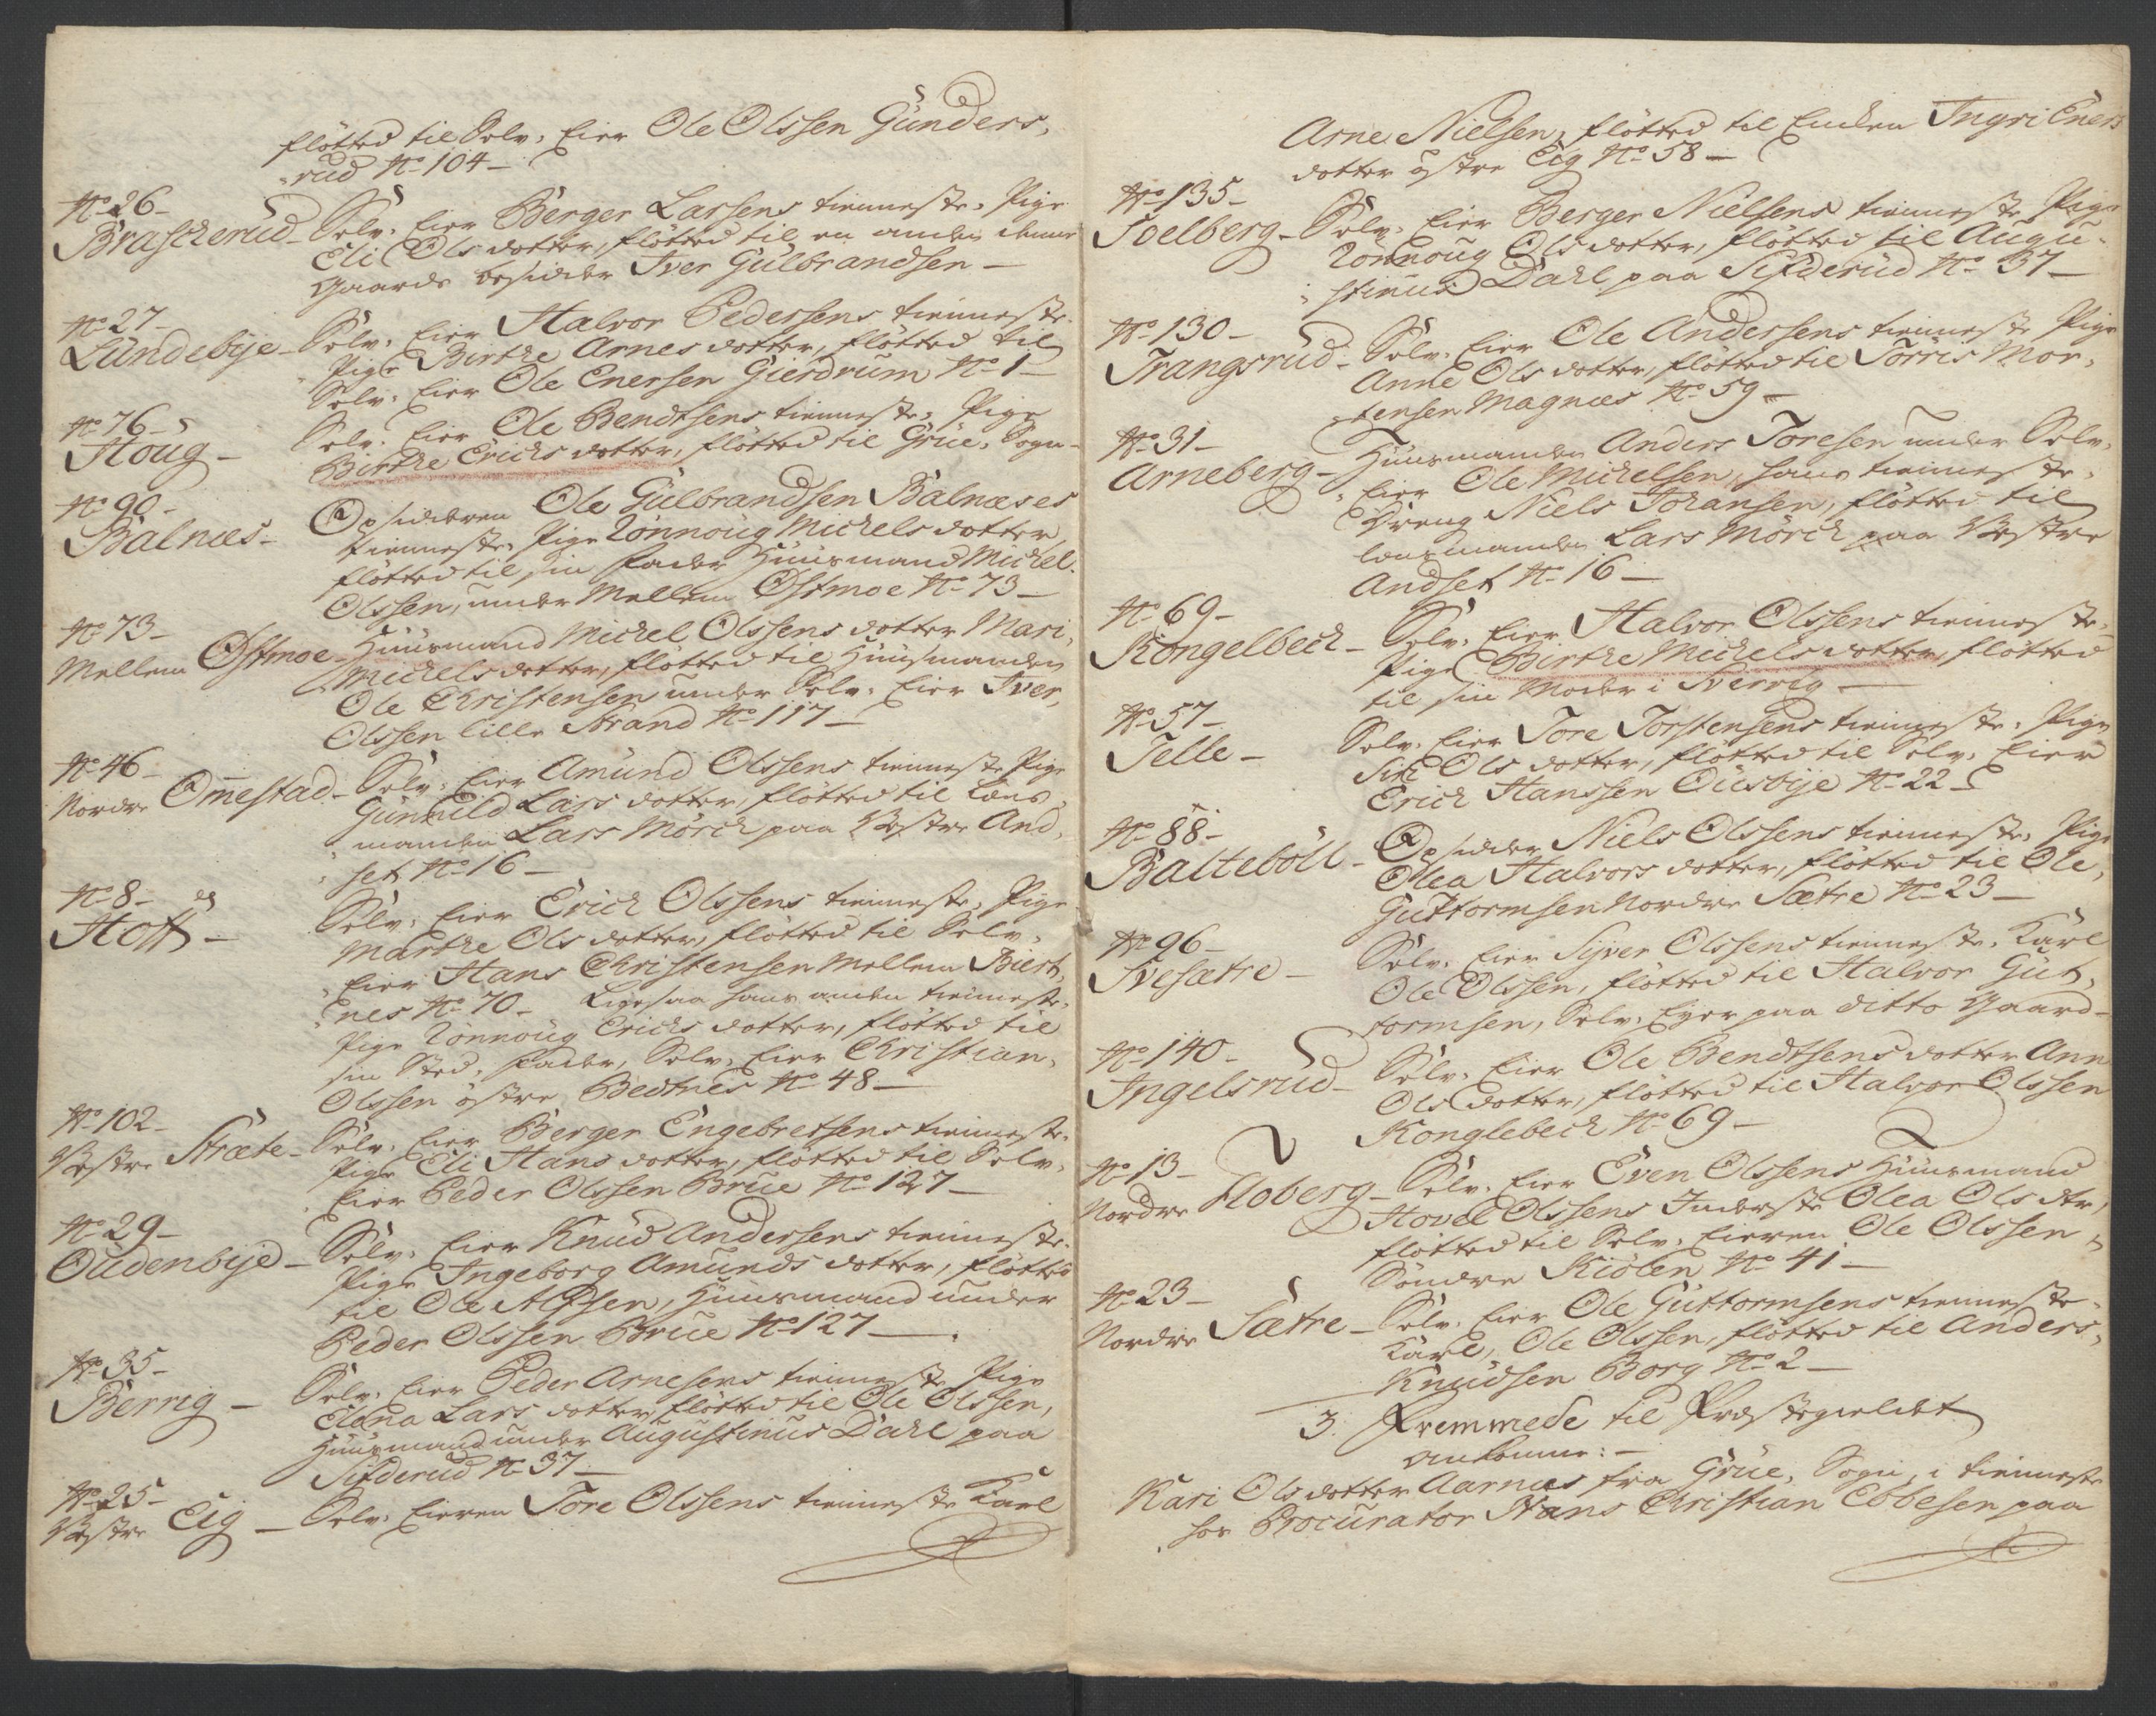 flötted til Selv, Eier Ole Olssen Gunders,
rud No 104 –
No 26 –
Brascherud – Selv, Eier Berger Larsens tienneste, Pige
Eli Olsdotter, flötted til en anden denne
Gaards besidder Iver Gulbrandsen –
No 27 –
Lundebÿe – Selv, Eier Halvor Pedersens tienneste,
Pige Birthe Arnesdotter, flötted til
Selv, Eier Ole Enersen Gierdrum No 1 –
No 76 –
Houg – Selv, Eier Ole Bendtsens tienneste, Pige
Birthe Erichsdotter, flötted til Grue, Sogn –
No 90 –
Balnæs – Opsidderen Ole Gulbrandsen Balnæses
tienneste, Pige Rönnoug Michelsdotter,
flötted til sin Fader Huusmand Michel
Olssen, under Mellem Østmoe No 73 –
No 73 –
Mellem Østmoe – Huusmand Michel Olssens dotter Mari,
Michelsdotter, flötted til Huusmanden
Ole Christensen under Selv, Eier Iver,
Olssen lille Strand No 117 –
No 46 –
Nordre Omestad – Selv, Eier Amund Olssens tienneste Pige
Gunnild Larsdotter, flötted til Lens,
manden Lars Mörch paa Vestre And,
set No 16 –
No 8 –
Hoff – Selv, Eier Erich Olssens tienneste, Pige
Marthe Olsdotter, flötted til Selv,
Eier Hans Christensen Mellem Biert,
nes No 70 – Ligesaa hans anden tienneste,
Pige Rönnoug Erichsdotter, flötted til
sin Sted, Fader, Selv, Eier Christian,
Olssen östre Bedtnes No 48 –
No 102 –
Vestre Stræte – Selv, Eier Berger Engebretsens tienneste,
Pige Eli Hansdotter, flötted til Selv,
Eier Peder Olssen Brue No 127 –
No 29 –
Oudenbÿe – Selv, Eier Knud Andersens tienneste,
Pige Ingeborg Amundsdotter, flötted
til Ole Alfsen, Huusmand under
Peder Olssen Brue No 127 –
No 35 –
Berrig – Selv, Eier Peder Arnesens tienneste Pige
Elena Larsdotter, flötted til Ole Olssen,
Huusmand under Augustinus Dahl paa
Sifderud No 37 –
No 25 –
Vestre Eig – Selv, Eieren Tore Olssens tienneste Karl
Arne Nielsen, flötted til Enken Ingri Eners
dotter östre Eig No 58 –
No 135 –
Soelberg – Selv, Eier Berger Nielsens tienneste Pige
Rönnoug Olsdotter, flötted til Augu,
stinus Dahl paa Sifderud No 37 –
No 130 –
Trangsrud – Selv, Eier Ole Andersens tienneste Pige
Anne Olsdotter, flötted til Torris Mor,
tensen Magnæs No 59 –
No 31 –
Arneberg – Huusmanden Anders Toresen under Selv,
Eier Ole Michelsen, hans tienneste,
Dreng Niels Johansen, flötted til
Lensmanden Lars Mörch paa Vestre
Andset No 16 –
No 69 –
Kongelbech – Selv, Eier Halvor Olssens tienneste,
Pige Birthe Michelsdotter, flötted
til sin Moder i Sverrig –
No 57 –
Telle – Selv, Eier Tore Torstensens tienneste, Pige
Siri Olsdotter, flötted til Selv, Eier
Erich Hanssen Ousbÿe No 22 –
No 88 –
Balteböll – Opsidder Niels Olssens tienneste, Pige
Olea Halvorsdotter, flötted til Ole,
Guttormsen Nordre Sætre No 23 –
No 96 –
Svesætre – Selv, Eier Syver Olssens tienneste, Karl
Ole Olssen, flötted til Halvor Gut,
tormsen, Selv, Eyer paa ditto Gaard –
No 140 –
Ingelsrud – Selv, Eier Ole Bendtsens dotter Ann
Olsdotter, flötted til Halvor Olssen
Konglebech No 69 –
No 13 –
Nordre Floberg – Selv, Eier Even Olssens Huusmand
Hovel Olssens Inderste Olea Olsdtr,
flötted til Selv, Eieren Ole Olssen
Söndre Kiölen No 41 –
No 23 –
Nordre Sætre – Selv, Eier Ole Guttormsens tienneste,
Karl, Ole Olssen, flötted til Anders,
Knudsen Borg No 2 –
3. Fremmede til Præstegieldet
ankomne: –
Kari Olsdotter Aarnæs fra Grue, Sogn, i tienneste
hos Procurator Hans Christian Ebbesen paa